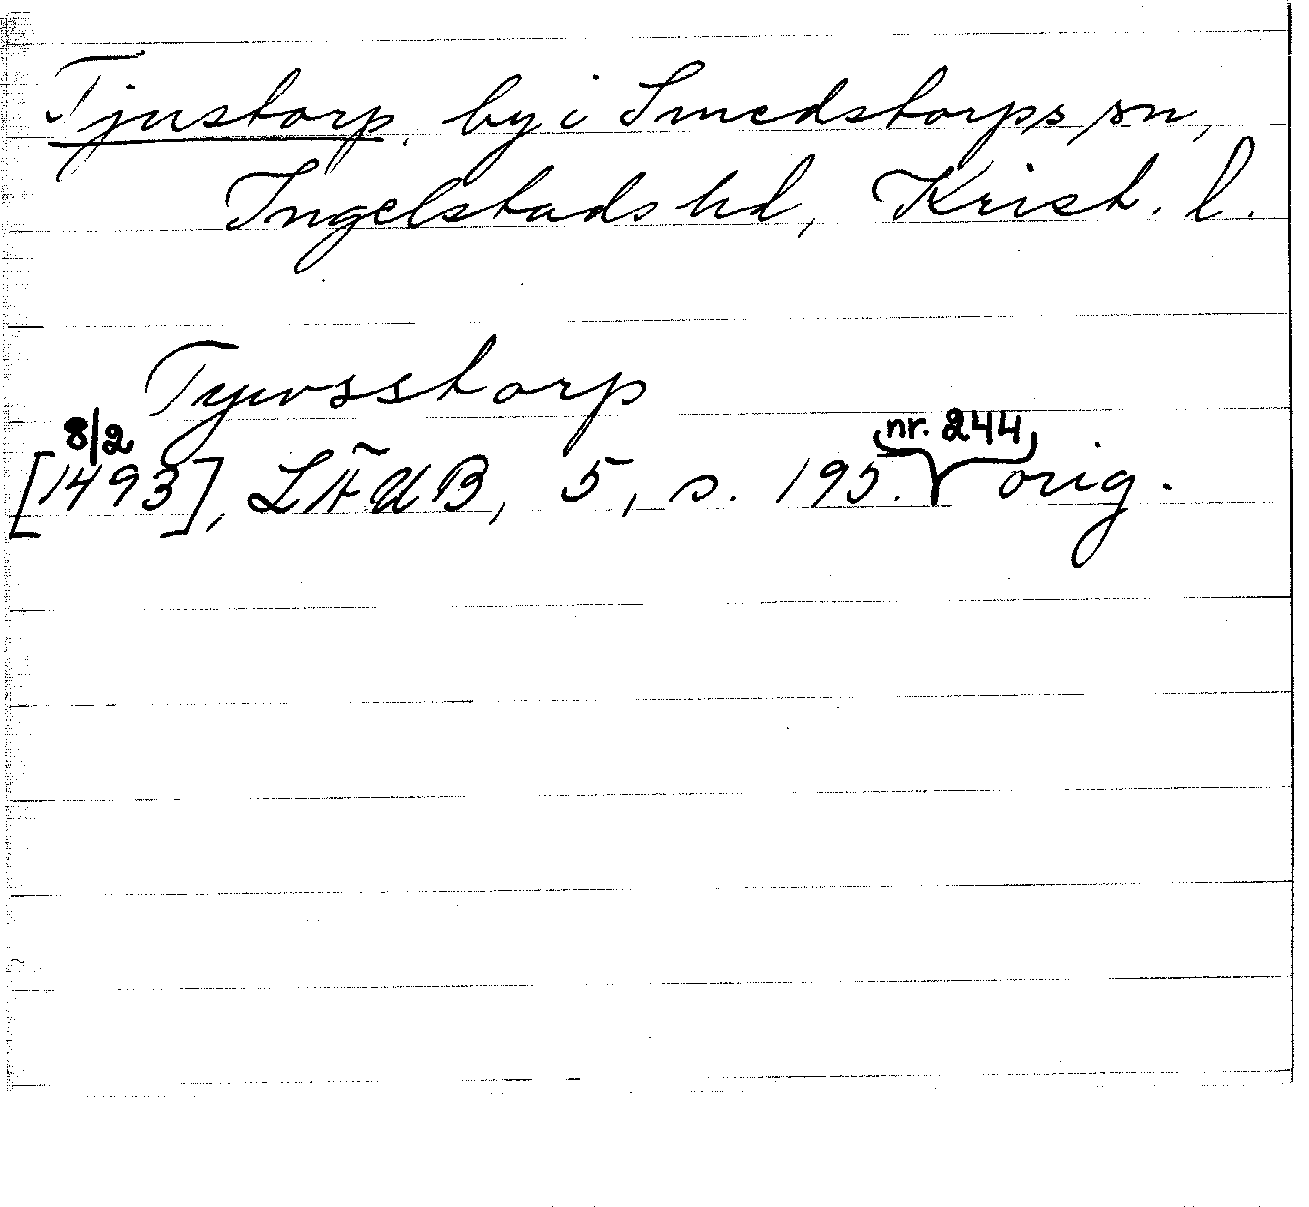 Tjustorp, by i Smedstorps sn,
Ingelstads hd, Krist. l.
Tywsstorp
8/2
[1493], LÄUB, 5, s. 195. (nr. 244) orig.